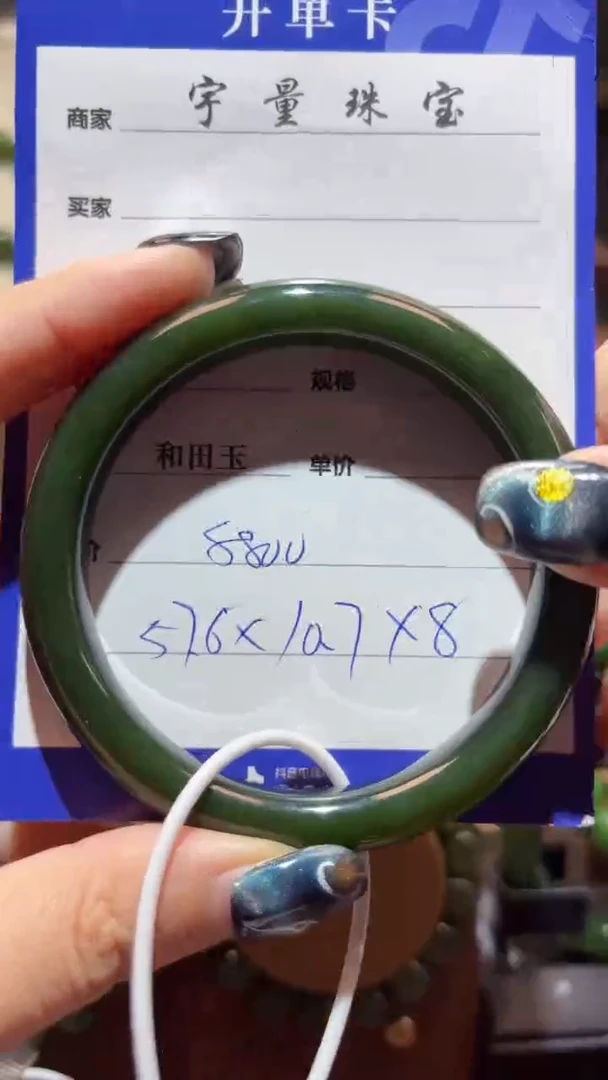 开单卡
商家 宇量珠宝
买家
规格
和田玉 单价
8800
576×10.7×8